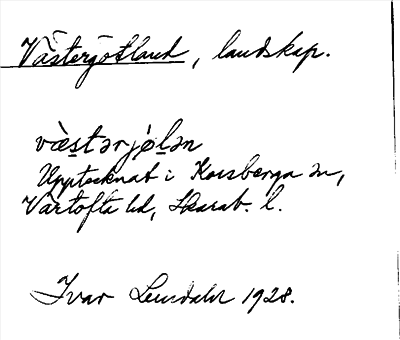 Västergötland, landskap.
væ̀stərjǿlən
Upptecknat i Korsberga sn,
Vartofta hd, Skarab. l.
Ivar Lundahl 1928.